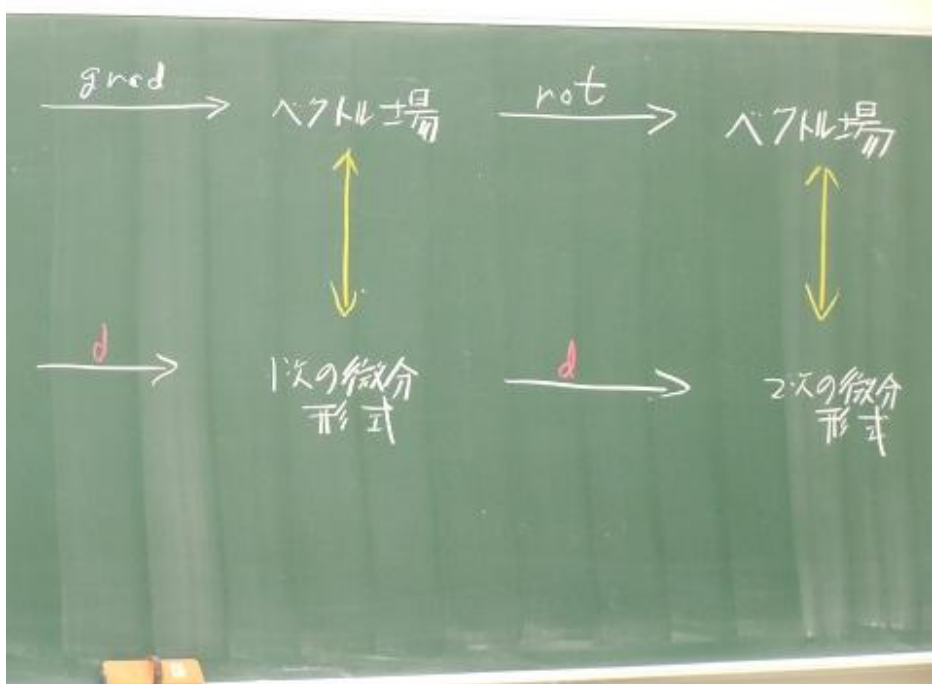 grad
ベクトル場
rot
ベクトル場
d
1次の微分
形式
d
2次の微分
形式